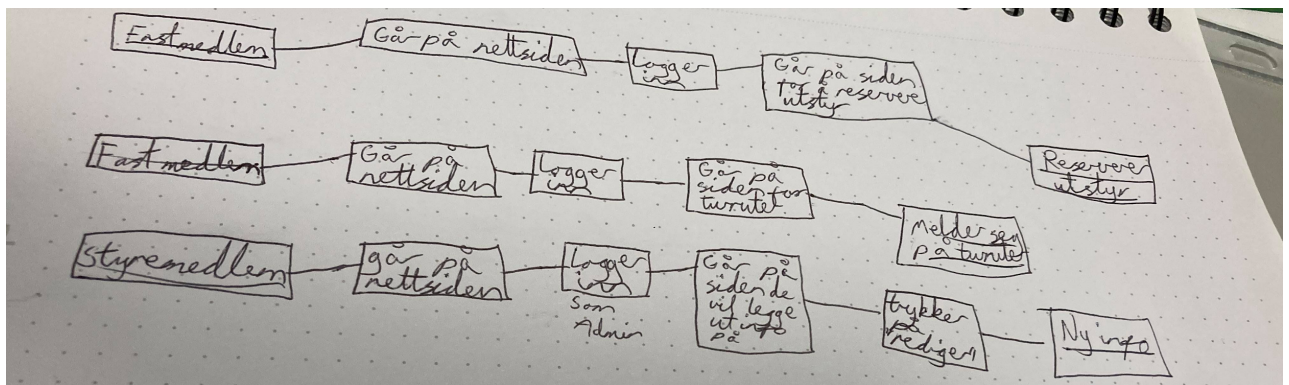 Fastmedlem
Går på nettsiden
Logger
inn
Går på siden
for å reservere
utstyr
Reservere
utstyr
Fastmedlem
Går på
nettsiden
Logger
inn
Går på
siden for
turutet
Melder seg
på turutet
Styremedlem
går på
nettsiden
Logger
inn
Som
Admin
Går på
siden de
vil legge
ut info
på
trykker
på
rediger
Ny info